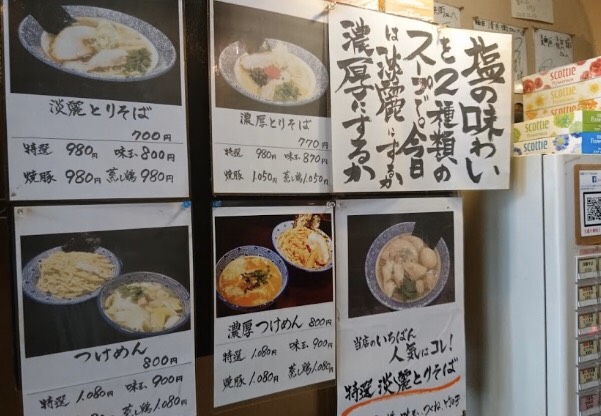 淡麗とりそば
700円
特選 980円 味玉 800円
焼豚 980円 蒸し鶏 980円
濃厚とりそば
770円
特選 980円 味玉 870円
焼豚 1,050円 蒸し鶏 1,050円
塩の味わい
を2種類の
スープで。今日
は淡麗にするか
濃厚にするか
つけめん
800円
特選 1,080円 味玉 900円
焼豚 1,080円 蒸し鶏 1,080円
濃厚つけめん 800円
特選 1,080円 味玉 900円
焼豚 1,080円 蒸し鶏 1,080円
当店のいちばん
人気はコレ!
特選 淡麗とりそば
SCOTTIE
SCOTTIE
SCOTTIE
SCOTTIE